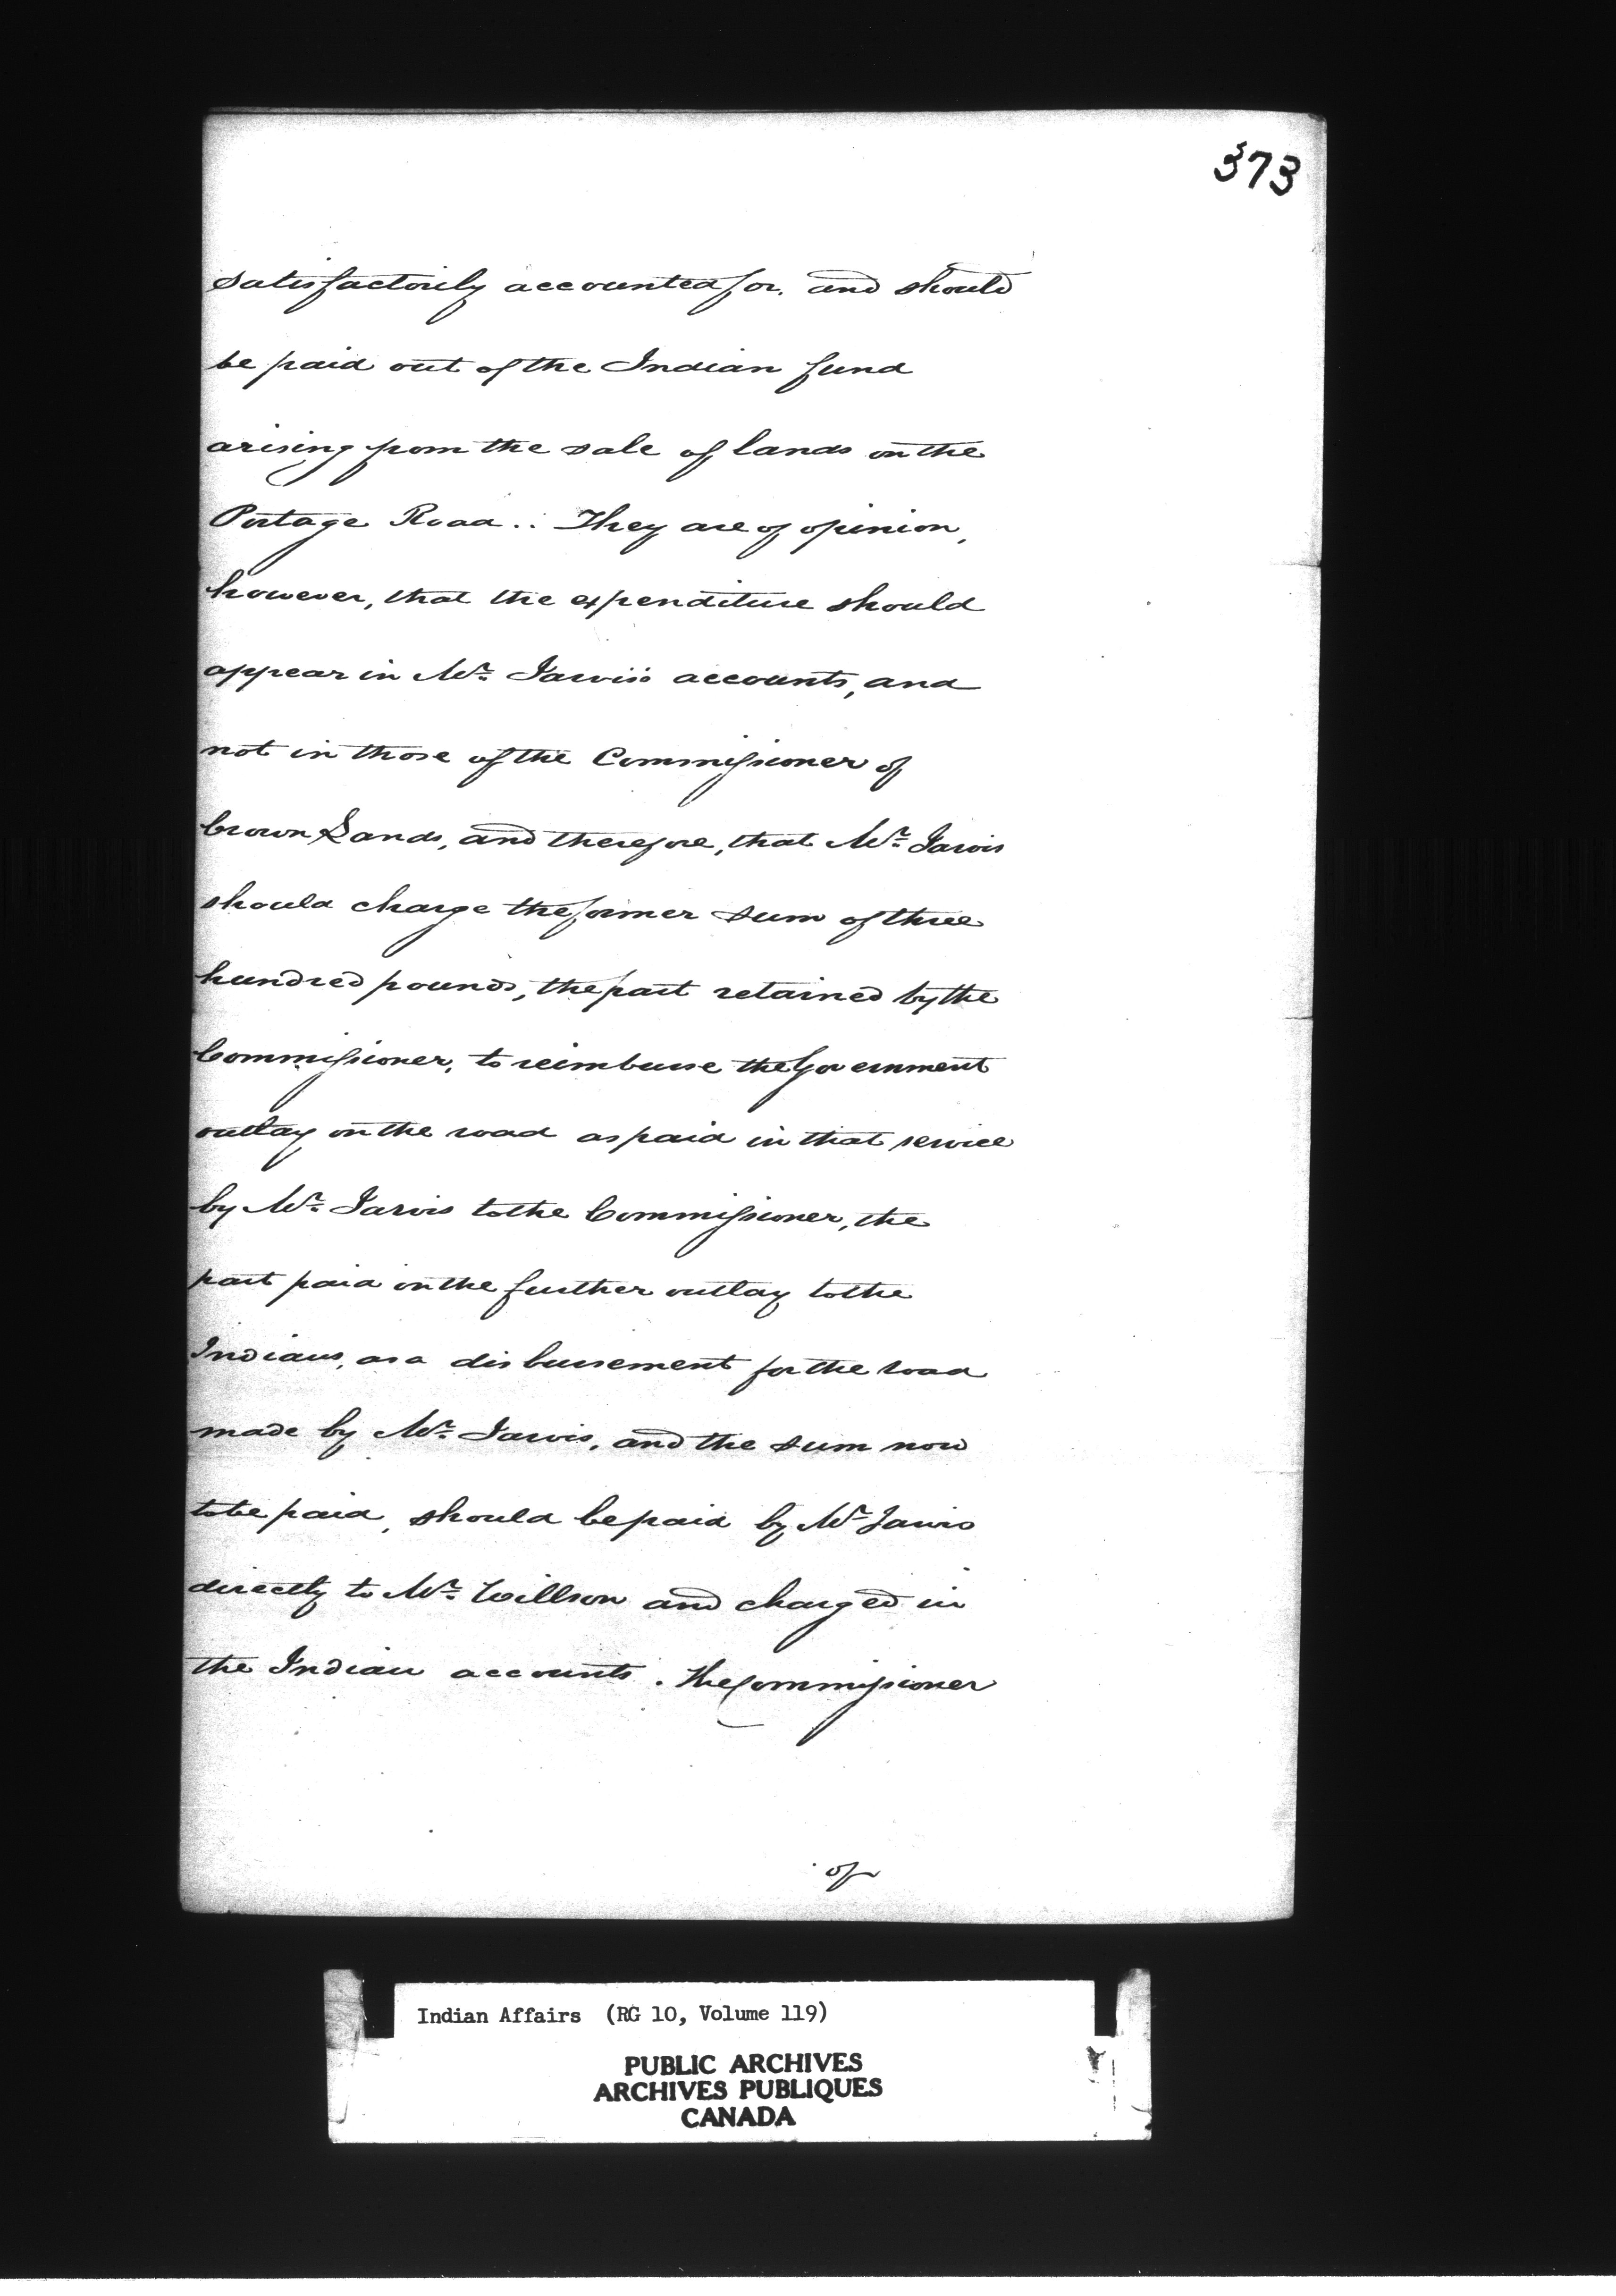 373
satisfactorily accounted for, and should
be paid out of the Indian fund
arising from the sale of lands on the
Portage Road. They are of opinion,
however, that the expenditure should
appear in Mr. Jarvis's accounts, and
not in those of the Commissioner of
Crown Lands, and therefore, that Mr. Jarvis
should charge the former sum of three
hundred pounds, the part retained by the
Commissioner, to reimburse the Government
outlay on the road as paid in that service
by Mr. Jarvis to the Commissioner, the
part paid on the further outlay to the
Indians, as a disbursement for the road
made by Mr. Jarvis, and the sum now
to be paid, should be paid by Mr. Jarvis
directly to Mr. Willson and charged in
the Indian accounts. The Commissioner
of
Indian Affairs (RG 10, Volume 119)
PUBLIC ARCHIVES
ARCHIVES PUBLIQUES
CANADA